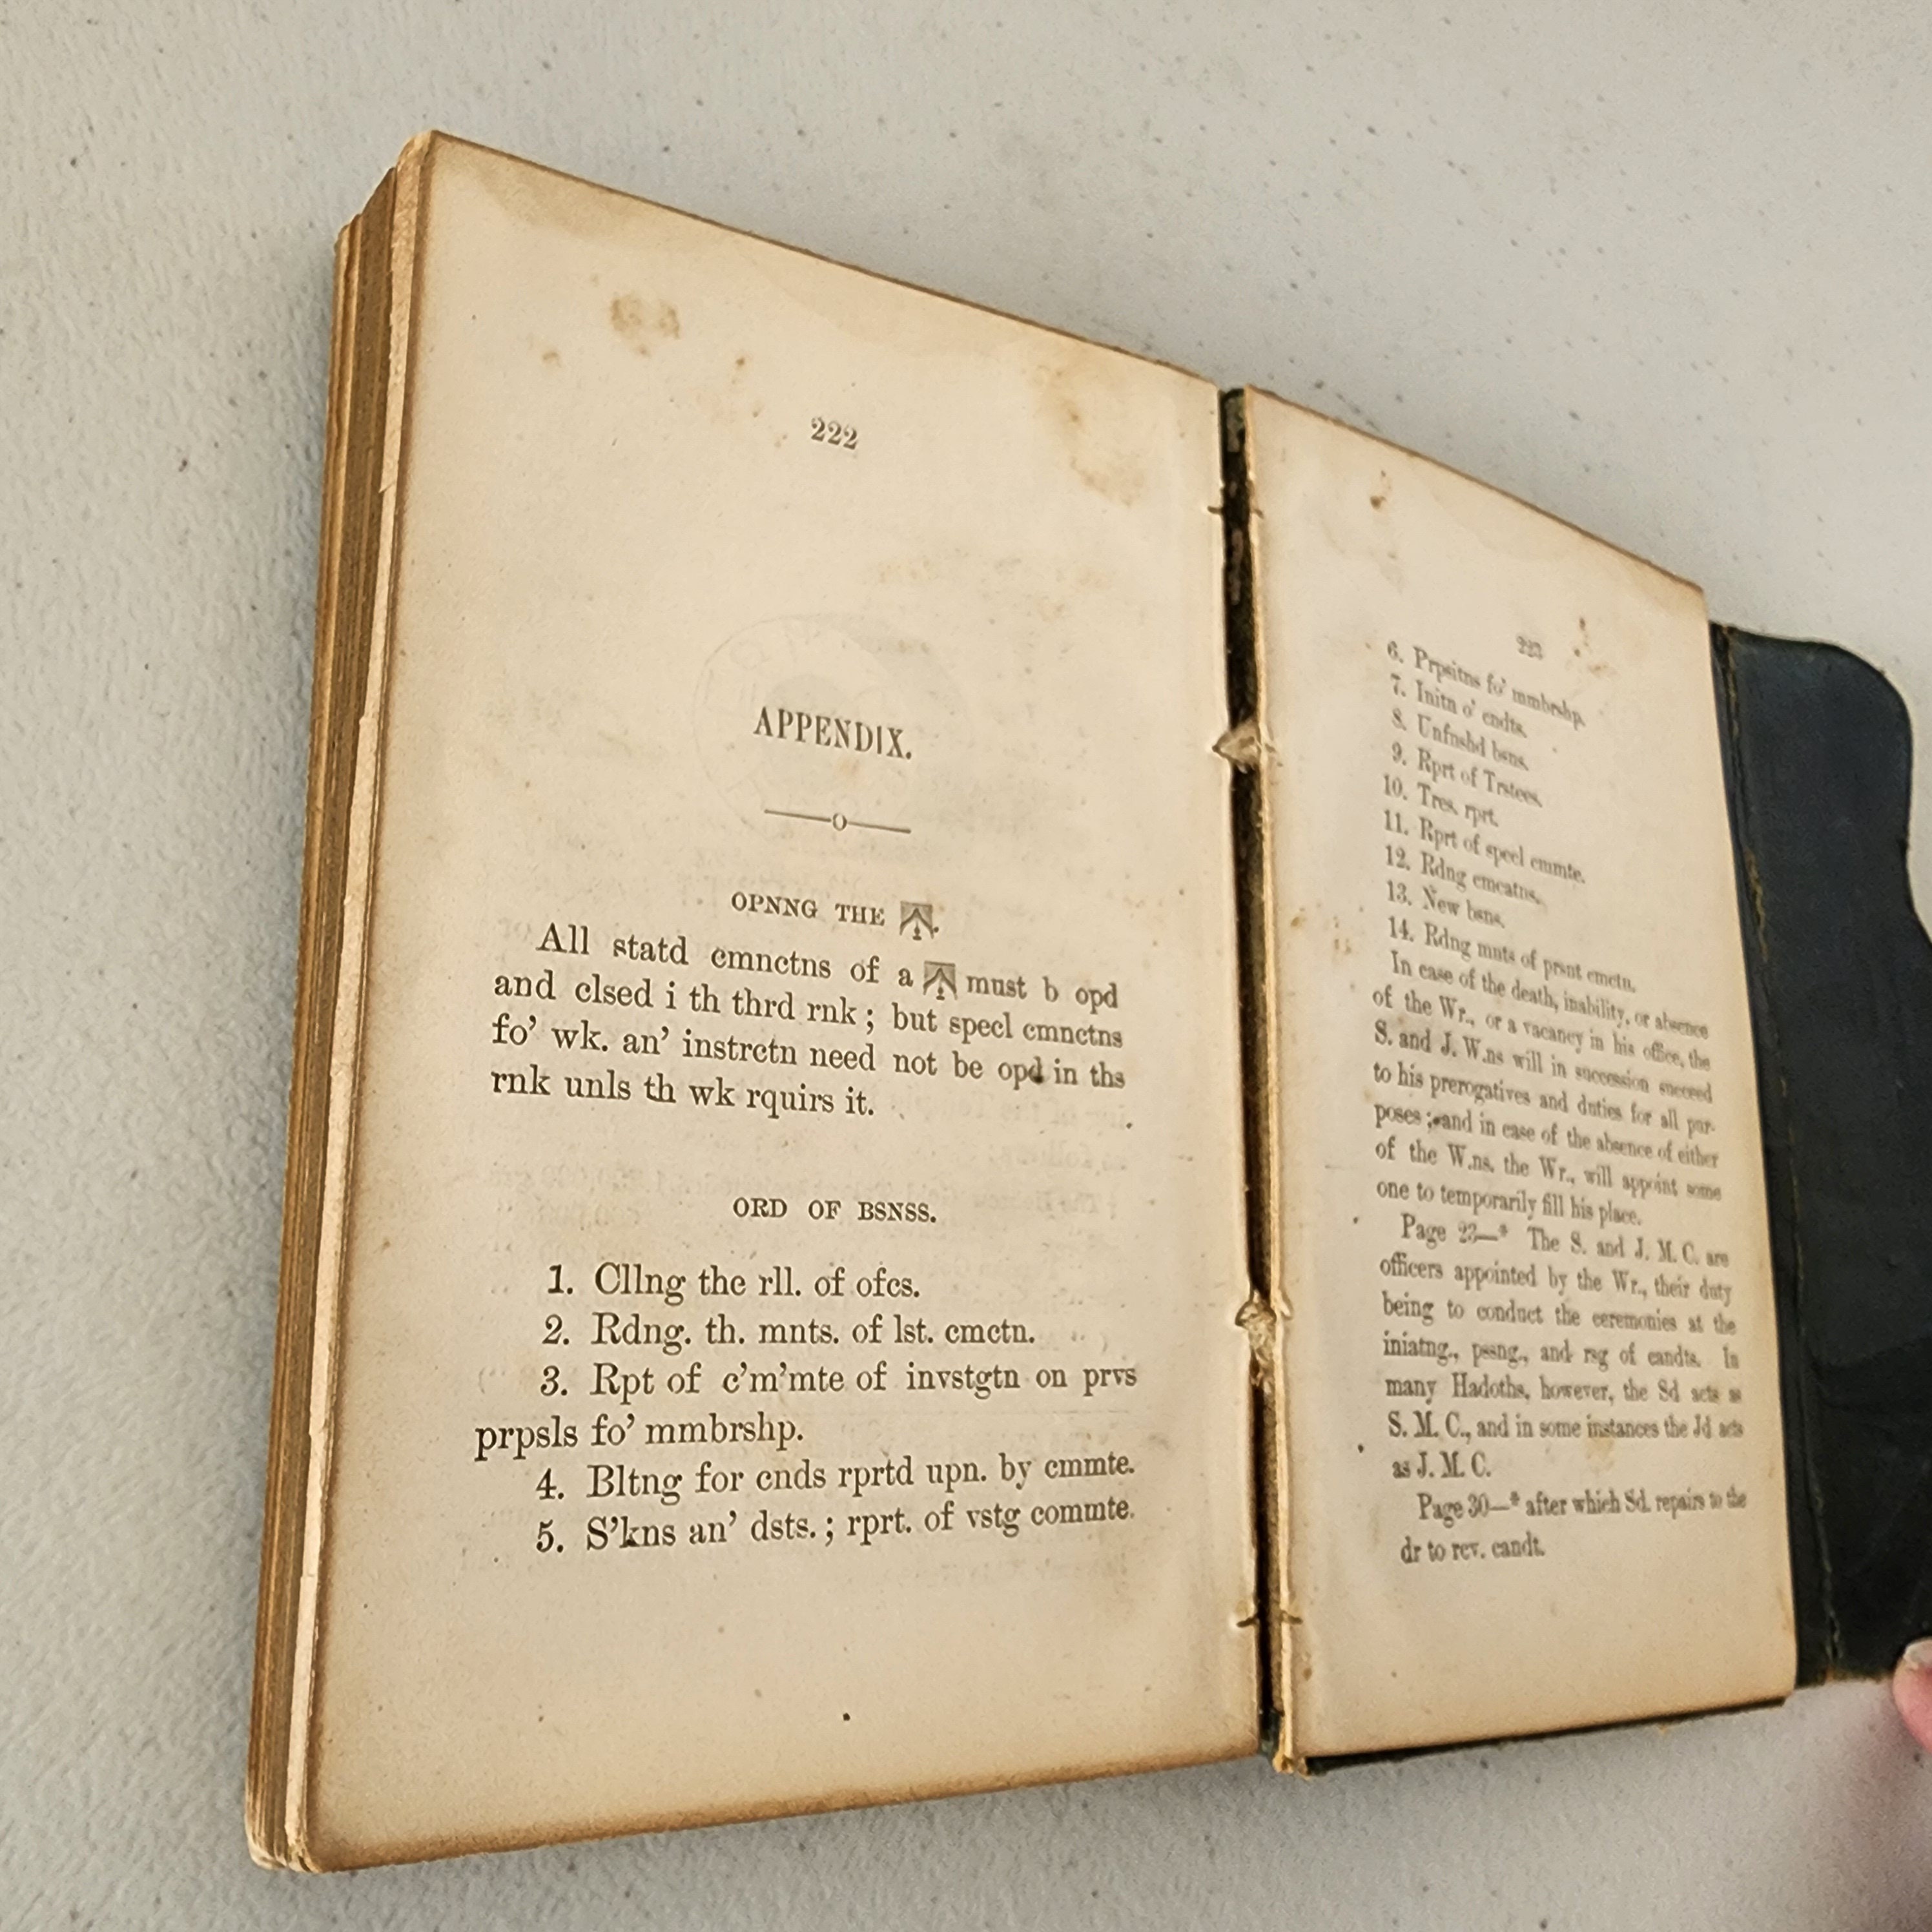 222
APPENDIX.
OPNNG THE
All statd cmnctns of a must b opd
and clsed i th thrd rnk; but specl cmnctns
fo' wk. an' instrctn need not be opd in ths
rnk unls th wk rquirs it.
ORD OF BSNSS.
1. Cllng the rll. of ofcs.
2. Rdng. th. mnts. of lst. cmctn.
3. Rpt of c'm'mte of invstgtn on prvs
prpsls fo' mmbrshp.
4. Bltng for cnds rprtd upn. by cmmte.
5. S'kns an' dsts.; rprt. of vstg commte.
223
6. Prpsitns fo' mmbrshp.
7. Initn o' cndts.
8. Unfnshd bsns.
9. Rprt of Trstees.
10. Tres. rprt.
11. Rprt of specl cmmte.
12. Rdng cmcatns.
13. New bsns.
14. Rdng mnts of prsnt cmctn.
In case of the death, inability, or absence
of the Wr., or a vacancy in his office, the
S. and J. W.ns will in succession succeed
to his prerogatives and duties for all pur-
poses; and in case of the absence of either
of the W.ns. the Wr., will appoint some
one to temporarily fill his place.
Page 23—* The S. and J. M. C. are
officers appointed by the Wr., their duty
being to conduct the ceremonies at the
iniatng., pssng., and rsg of candts. In
many Hadoths, however, the Sd acts as
S. M. C., and in some instances the Jd acts
as J. M. C.
Page 30—* after which Sd. repairs to the
dr to rev. candt.